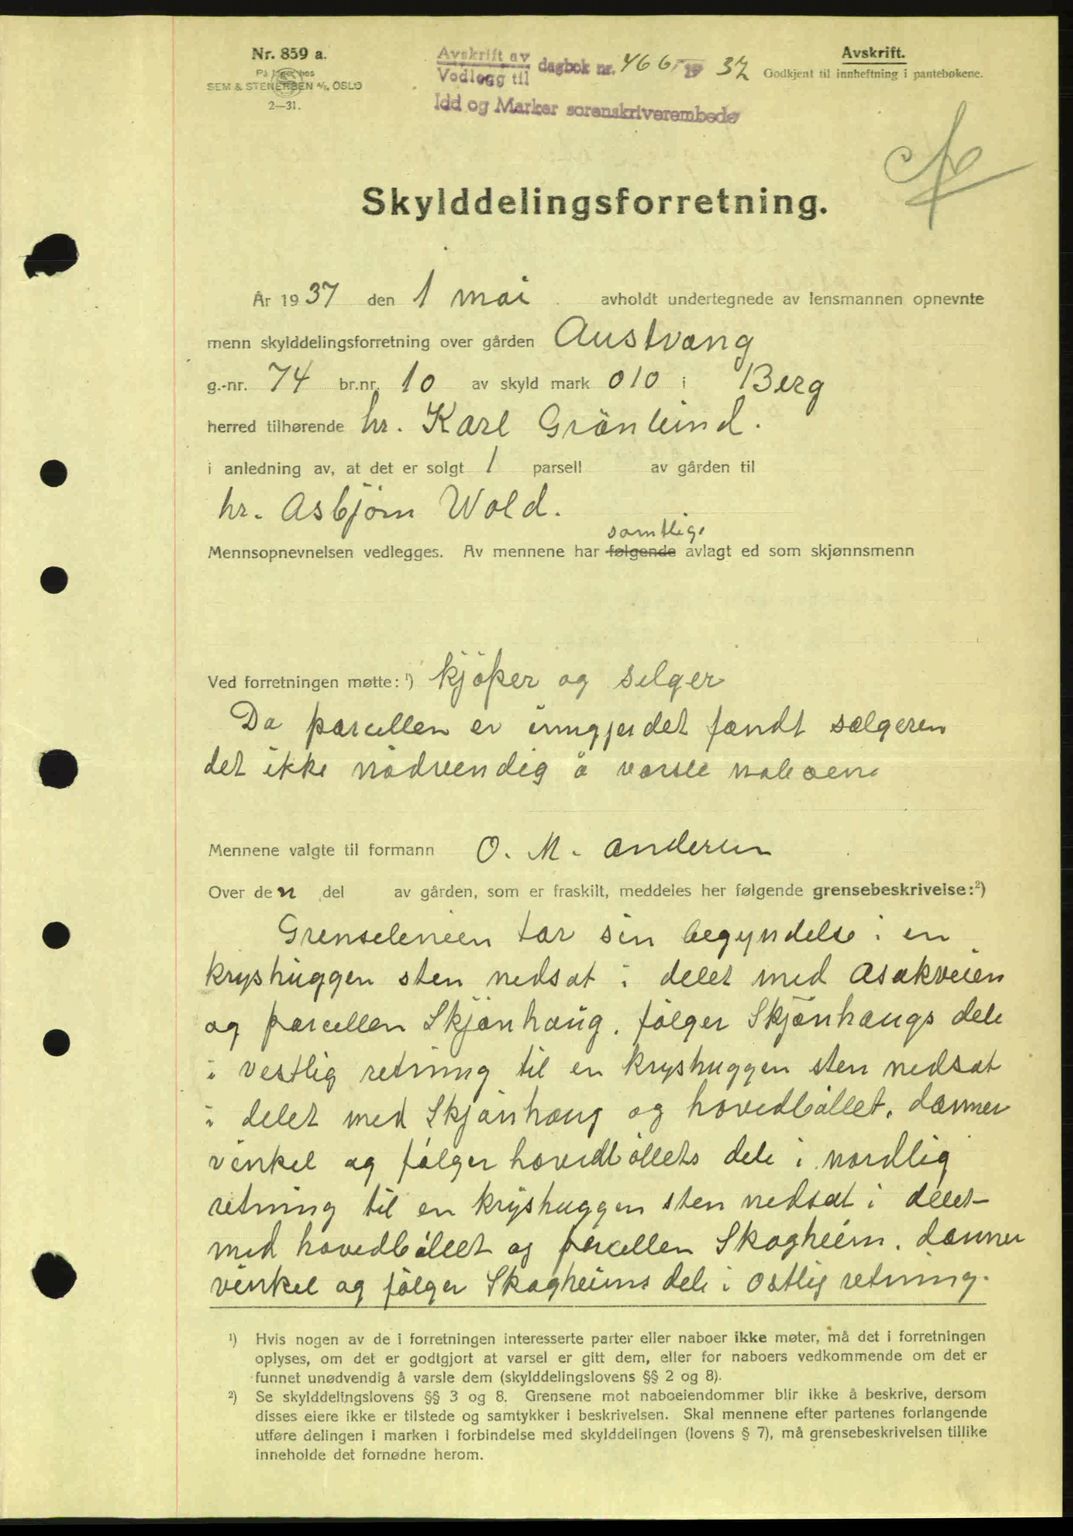 Nr. 859 a.
SEM & STENERSEN A/S, OSLO
2—31.
Avskrift av
Vedlegg til
dagbok nr. 466 19 37
Idd og Marker sorenskriverembede
Avskrift.
Godkjent til innheftning i pantebøkene.
Skylddelingsforretning.
År 1937 den 1 mai avholdt undertegnede av lensmannen opnevnte
menn skylddelingsforretning over gården Austvang
g.-nr. 74 br.nr. 10 av skyld mark 010 i Berg
herred tilhørende hr. Karl Grönlund.
i anledning av, at det er solgt 1 parsell av gården til
hr. Asbjørn Wold.
samtlige
Mennsopnevnelsen vedlegges. Av mennene har følgende avlagt ed som skjønnsmenn
Ved forretningen møtte: ¹) kjöper og selger
Da parcellen er inngjerdet fandt sælgeren
det ikke nödvendig å varsle naboene
Mennene valgte til formann O. M. Andersen
Over den del av gården, som er fraskilt, meddeles her følgende grensebeskrivelse: ²)
Grenselenien tar sin begyndelse i en
kryshuggen sten nedsat i delet med Asakveien
og parcellen Skjönhaug, fölger Skjönhaugs dele
i vestlig retning til en kryshuggen sten nedsat
i delet med Skjönhaug og hovedbóllet, danner
vinkel og fölger hovedbóllets dele i nordlig
retning til en kryshuggen sten nedsat i delet
med hovedbóllet og parcellen Skogheim, danner
vinkel og fölger Skogheims dele i ostlig retning.
¹) Hvis nogen av de i forretningen interesserte parter eller naboer ikke møter, må det i forretningen
oplyses, om det er godtgjort at varsel er gitt dem, eller for naboers vedkommende om det er
funnet unødvendig å varsle dem (skylddelingslovens §§ 2 og 8).
²) Se skylddelingslovens §§ 3 og 8. Grensene mot naboeiendommer blir ikke å beskrive, dersom
disses eiere ikke er tilstede og samtykker i beskrivelsen. Skal mennene efter partenes forlangende
utføre delingen i marken i forbindelse med skylddelingen (lovens § 7), må grensebeskrivelsen tillike
inneholde det fornødne herom.